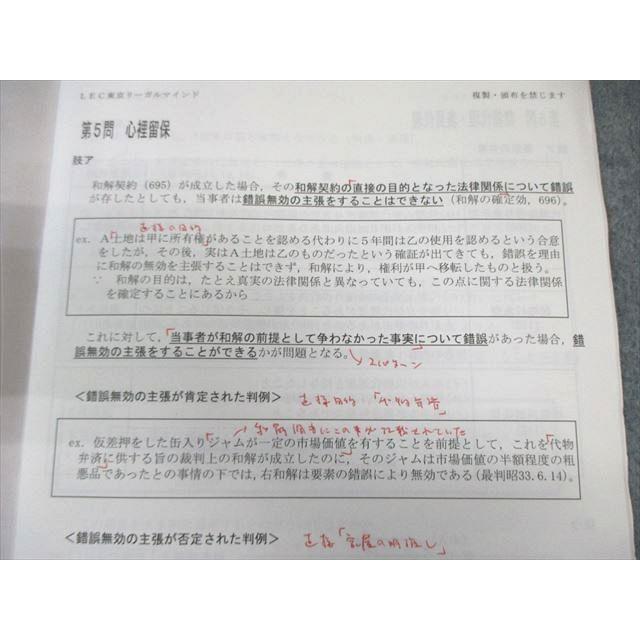 LEC東京リーガルマインド
複製・頒布を禁じます
第5問 心裡留保
肢ア
和解契約（695）が成立した場合，その和解契約の直接の目的となった法律関係について錯誤
が存したとしても，当事者は錯誤無効の主張をすることはできない（和解の確定効，696）。
直接の目的
ex. A土地は甲に所有権があることを認める代わりに5年間は乙の使用を認めるという合意
をしたが，その後，実はA土地は乙のものだったという確証が出てきても，錯誤を理由
に和解の無効を主張することはできず，和解により，権利が甲へ移転したものと扱う。
∵ 和解の目的は，たとえ真実の法律関係と異なっていても，この点に関する法律関係
を確定することにあるから
これに対して，「当事者が和解の前提として争わなかった事実について錯誤があった場合，錯
誤無効の主張をすることができるかが問題となる。
2パターン
＜錯誤無効の主張が肯定された判例＞
直接目的「代物弁済」
和解調書にこの事が記載されていた
ex. 仮差押をした缶入りジャムが一定の市場価値を有することを前提として，これを代物
弁済に供する旨の裁判上の和解が成立したのに，そのジャムは市場価値の半額程度の粗
悪品であったとの事情の下では，右和解は要素の錯誤により無効である（最判昭33.6.14）。
＜錯誤無効の主張が否定された判例＞
直接「家屋の明渡し」